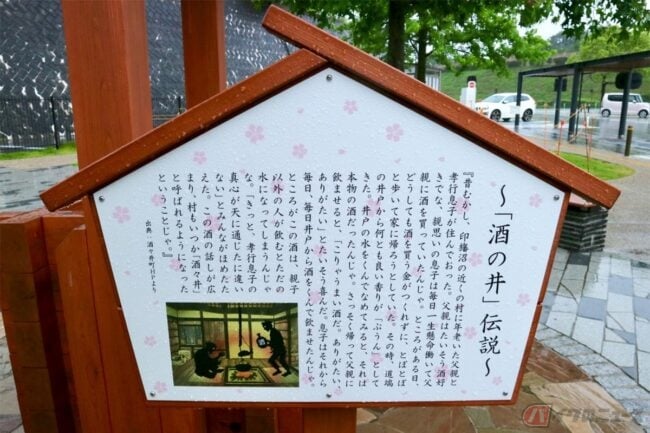 ～「酒の井」伝説～
『昔むかし、印旛沼の近くの村に年老いた父親と
孝行息子が住んでおった。父親はたいそう酒好
きでな、親思いの息子は毎日一生懸命働いて父
親に酒を買っていたんじゃ。ところがある日、
どうしても酒を買う金がつくれずに、とぼとぼ
と歩いて家に帰ろうとしていた。その時、道端
の井戸から何とも良い香りが「ぷうん」として
きた。井戸の水をくんでなめてみると、それは
本物の酒だったんじゃ。さっそく帰って父親に
飲ませると、「こりゃうまい酒だ。ありがたい、
ありがたい」と、たいそう喜んだ。息子はそれから
毎日、毎日井戸から酒をくんで飲ませたんじゃ。
ところがこの酒は、親子
以外の人が飲むとただの
水になってしまうんじゃ
な。「きっと、孝行息子の
真心が天に通じたに違い
ない」とみんながほめたた
えた。この酒の話しが広
まり、村もいつか「酒々井」
と呼ばれるようになった
ということじゃ。』
出典：酒々井町HPより
バイクのニュース